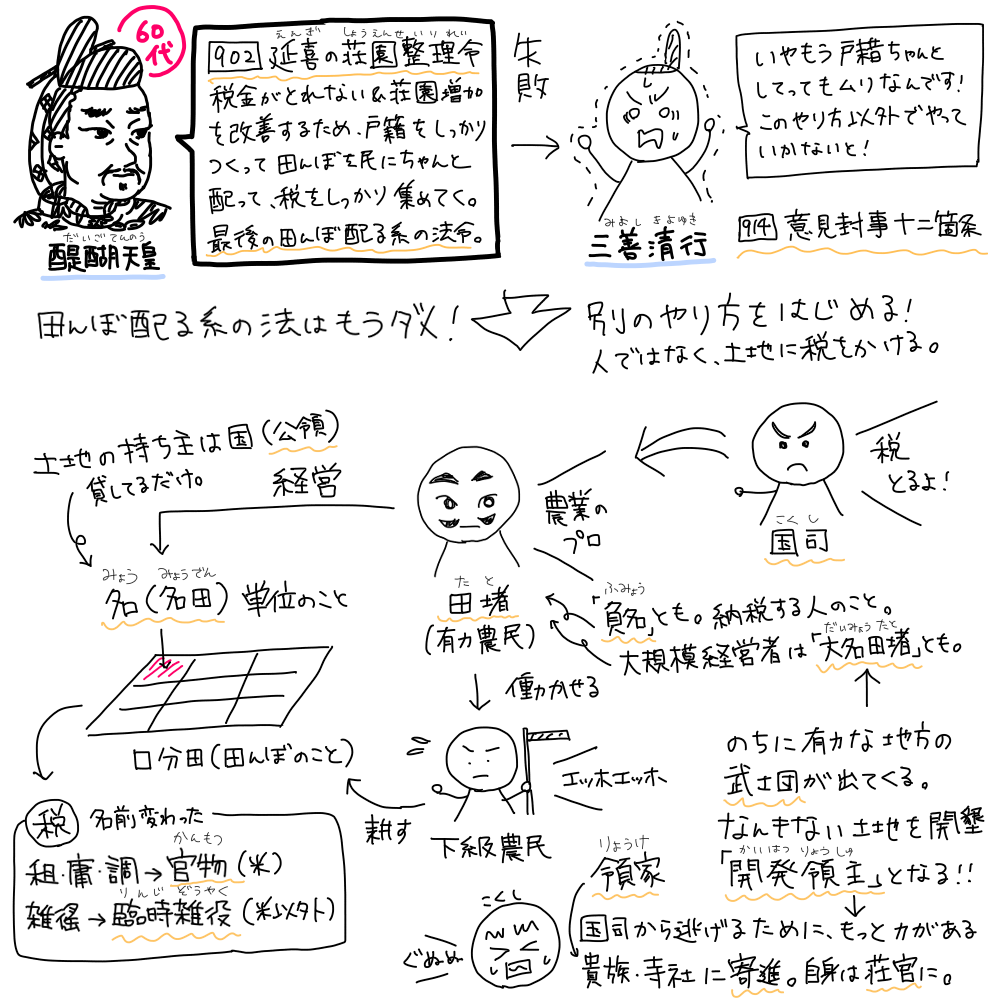 60代
だいごてんのう
醍醐天皇
えんぎ しょうえんせいりれい
902 延喜の荘園整理令
税金がとれない&荘園増加
を改善するため、戸籍をしっかり
つくって田んぼを民にちゃんと
配って、税をしっかり集めてく。
最後の田んぼ配る系の法令。
失敗
みよし きよゆき
三善清行
いやもう戸籍ちゃんと
してってもムリなんです!
このやり方以外でやって
いかないと!
914 意見封事十二箇条
田んぼ配る系の法はもうダメ!
別のやり方をはじめる!
人ではなく、土地に税をかける。
税
とるよ!
こくし
国司
農業の
プロ
たと
田堵
(有力農民)
経営
土地の持ち主は国(公領)
貸してるだけ。
みょう みょうでん
名(名田)単位のこと
ふみょう
「負名」とも。納税する人のこと。
だいみょうたと
大規模経営者は「大名田堵」とも。
働かせる
エッホエッホ
下級農民
耕す
口分田(田んぼのこと)
税 名前変わった
かんもつ
租・庸・調→官物(米)
りんじ ぞうやく
雑徭→臨時雑役(米以外)
のちに有力な地方の
武士団が出てくる。
なんきない土地を開墾
かいはつ りょうしゅ
「開発領主」となる!!
国司から逃げるために、もっと力がある
貴族・寺社に寄進。自身は荘官に。
りょうけ
領家
こくし
ぐぬぬ